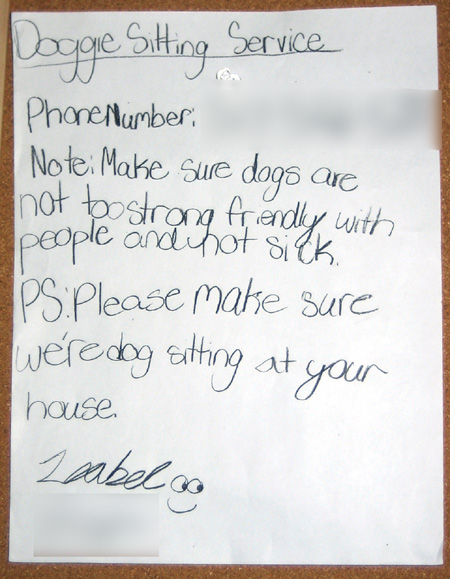 Doggie Sitting Service
Phone Number:
Note: Make sure dogs are
not too strong friendly with
people and not sick.
PS: Please make sure
we're dog sitting at your
house.
Isabel